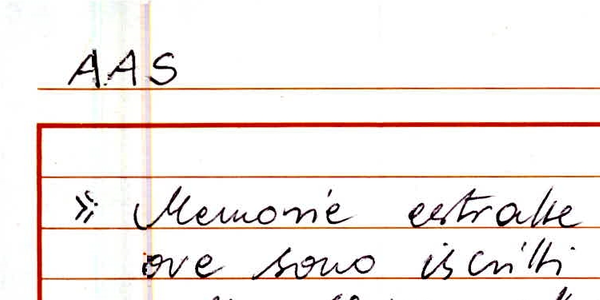 AAS
» Memorie estratte
ove sono iscritti